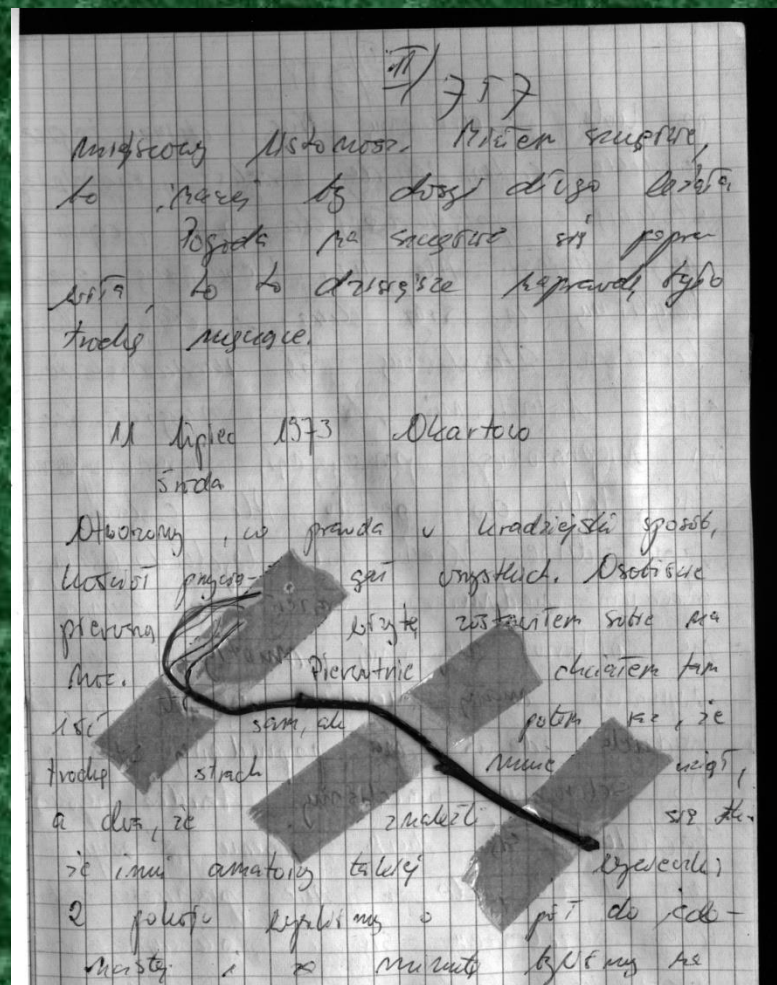 II/757
miejscowy listonosz. Miałem szczęście,
bo inaczej by dosyć długo leżała.
Pogoda na szczęście się popra
wiła, bo to dzisiejsze naprawdę było
trochę męczące.
11 lipiec 1973 Okartowo
Środa
Otworzony, co prawda w kradziejski sposób,
kościół przycią- gał wszystkich. Osobiście
pierwszą wizytę zostawiłem sobie na
noc. Pierwotnie chciałem tam
iść sam, ale potem raz, że
trochę strach mnie wziął,
a dwa, że znaleźli się
że inni amatorzy takiej wycieczki
2 pokoju wyszliśmy o pół do jede-
nastej i za minutę byliśmy na